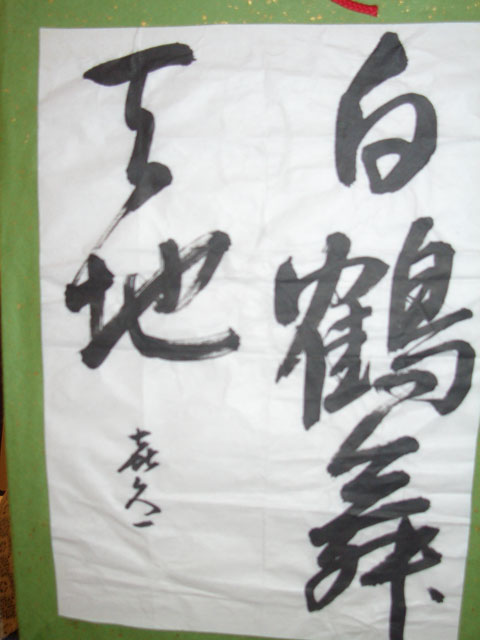 白鶴舞
天地
喜久一